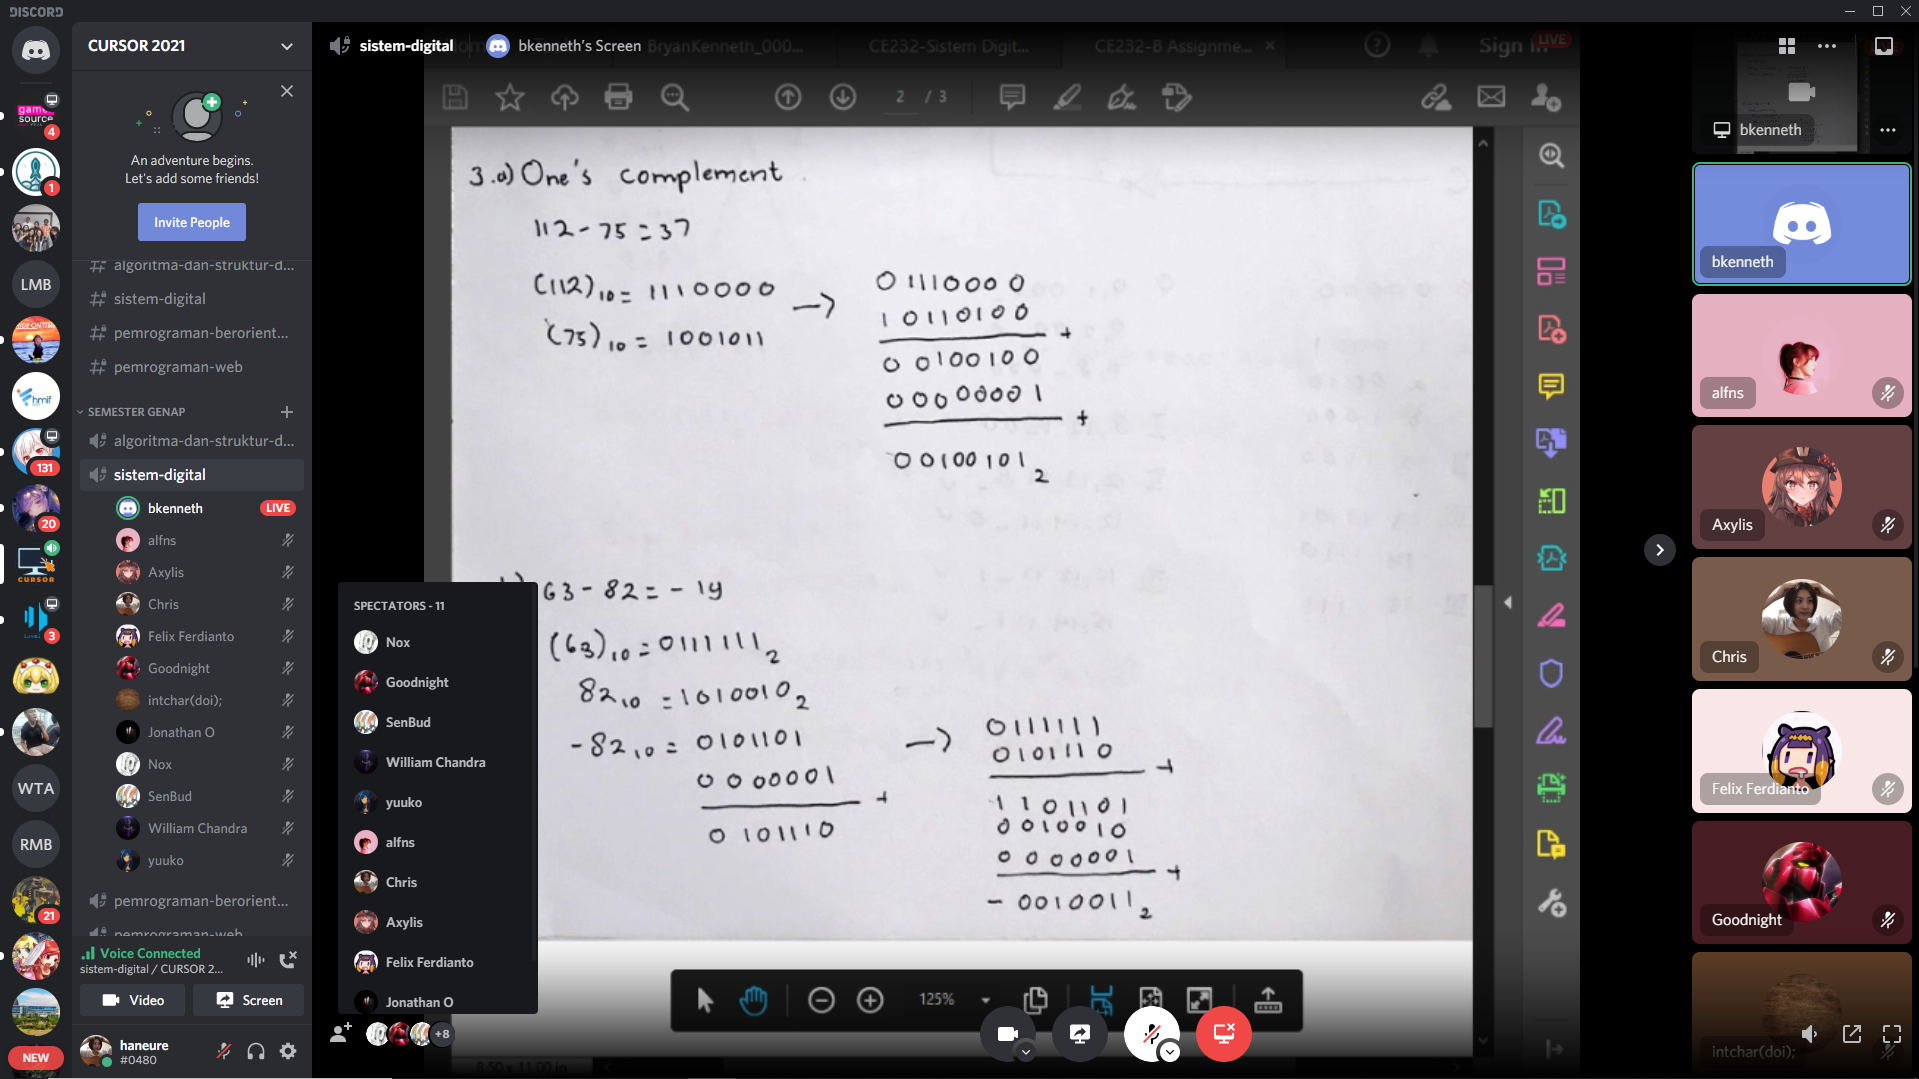 DISCORD
CURSOR 2021
An adventure begins.
Let's add some friends!
Invite People
algoritma-dan-struktur-d...
sistem-digital
pemrograman-berorient...
pemrograman-web
SEMESTER GENAP
algoritma-dan-struktur-d...
sistem-digital
bkenneth LIVE
alfns
Axylis
Chris
Felix Ferdianto
Goodnight
intchar(doi);
Jonathan O
Nox
SenBud
William Chandra
yuuko
pemrograman-berorient...
pemrograman-web
Voice Connected
sistem-digital / CURSOR 2...
Video
Screen
haneure
#0480
game source
4
1
LMB
hmif
131
20
CURSOR
3
WTA
RMB
21
NEW
sistem-digital
bkenneth's Screen
BryanKenneth_000...
CE232-Sistem Digit...
CE232-B Assignme...
Sign In
LIVE
2 / 3
3.a) One's complement
112 - 75 = 37
(112)10 = 1110000 →
(75)10 = 1001011
01110000
10110100 +
00100100
00000001 +
00100101 2
63 - 82 = - 19
(63)10 = 0111111 2
82 10 = 1010010 2
-82 10 = 0101101 →
0000001 +
0101110
0111111
0101110 +
1101101
0010010
0000001 +
- 0010011 2
SPECTATORS - 11
Nox
Goodnight
SenBud
William Chandra
yuuko
alfns
Chris
Axylis
Felix Ferdianto
Jonathan O
+8
125%
8.50 x 11.00 in
bkenneth
bkenneth
alfns
Axylis
Chris
Felix Ferdianto
Goodnight
intchar(doi);